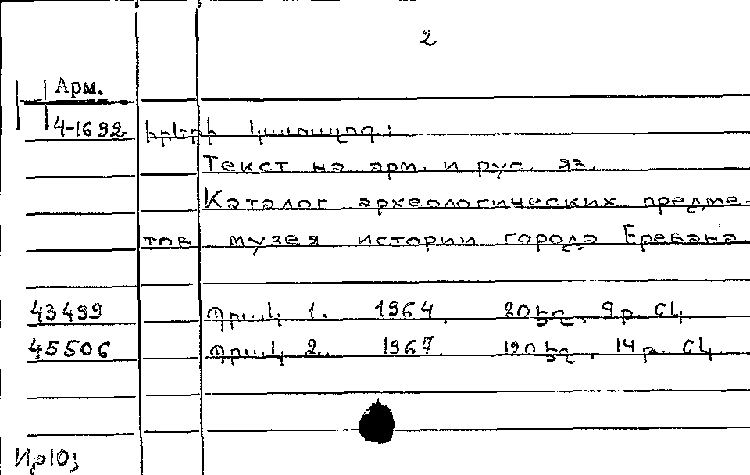 2
Арм.
4-1692 իրերի կատալոգ:
Текст на арм. и рус. яз.
Каталог археологических предме-
тов музея истории города Еревана
43499 Պրակ 1. 1964. 20 էջ, 9 թ. նկ.
45506 Պրակ 2. 1967. 120 էջ, 14 թ. նկ.